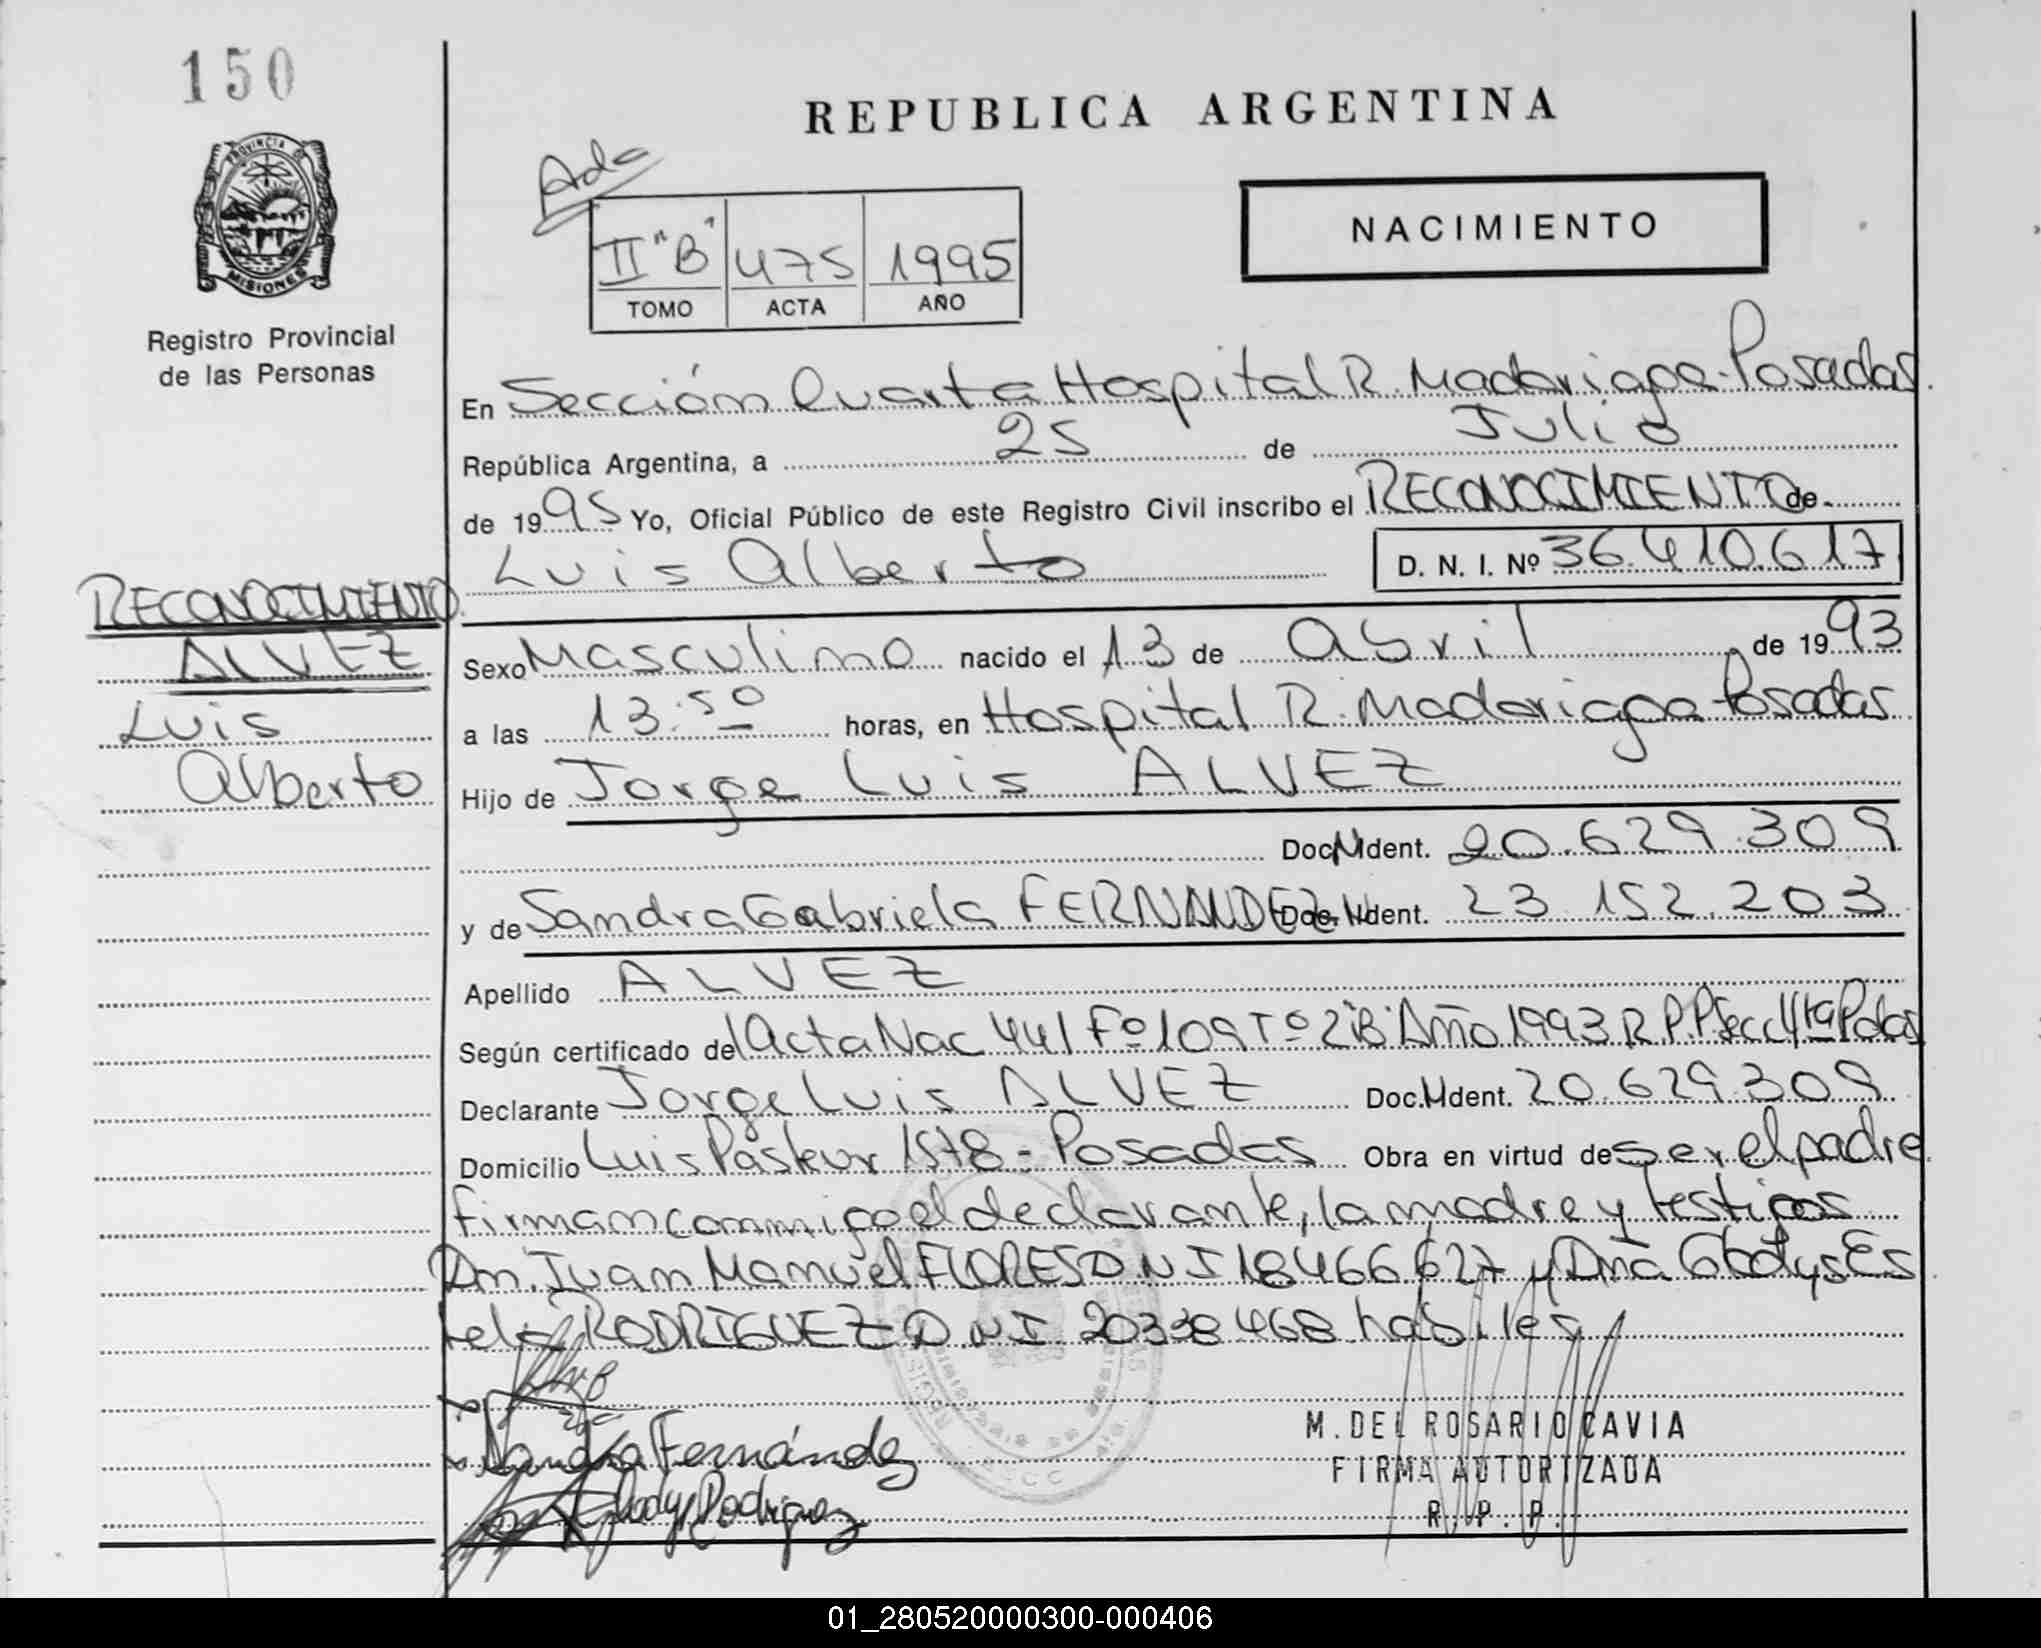 150
REPUBLICA ARGENTINA
PROVINCIA DE
MISIONES
Registro Provincial
de las Personas
Ada
II "B" 475 1995
TOMO ACTA AÑO
NACIMIENTO
En Sección Cuarta Hospital R. Madariaga-Posadas
República Argentina, a 25 de Julio
de 1995 Yo, Oficial Público de este Registro Civil inscribo el RECONOCIMIENTO de
Luis Alberto D. N. I. Nº 36.410.617
RECONOCIMIENTO
ALVEZ
Luis
Alberto
Sexo Masculino nacido el 13 de Abril de 1993
a las 13:50 horas, en Hospital R. Madariaga-Posadas
Hijo de Jorge Luis ALVEZ
Doc. Ident. 20.629.309
y de Sandra Gabriela FERNANDEZ Doc. Ident. 23.152.203
Apellido ALVEZ
Según certificado de Acta Nac 441 Fº 109 Tº 2 "B" Año 1993 R.P.P. Secc 4ta Pdas
Declarante Jorge Luis ALVEZ Doc. Ident. 20.629.309
Domicilio Luis Pasteur - Posadas Obra en virtud de ser el padre
firman conmigo el declarante, la madre y testigos
Dn. Juan Manuel FLORES D.N.I 18466627 y Dña Gladys Es
tela RODRIGUEZ D.N.I 20338468 habiles
Sandra Fernández
Gladys Rodriguez
M. DEL ROSARIO CAVIA
FIRMA AUTORIZADA
R. P. P.
01_280520000300-000406